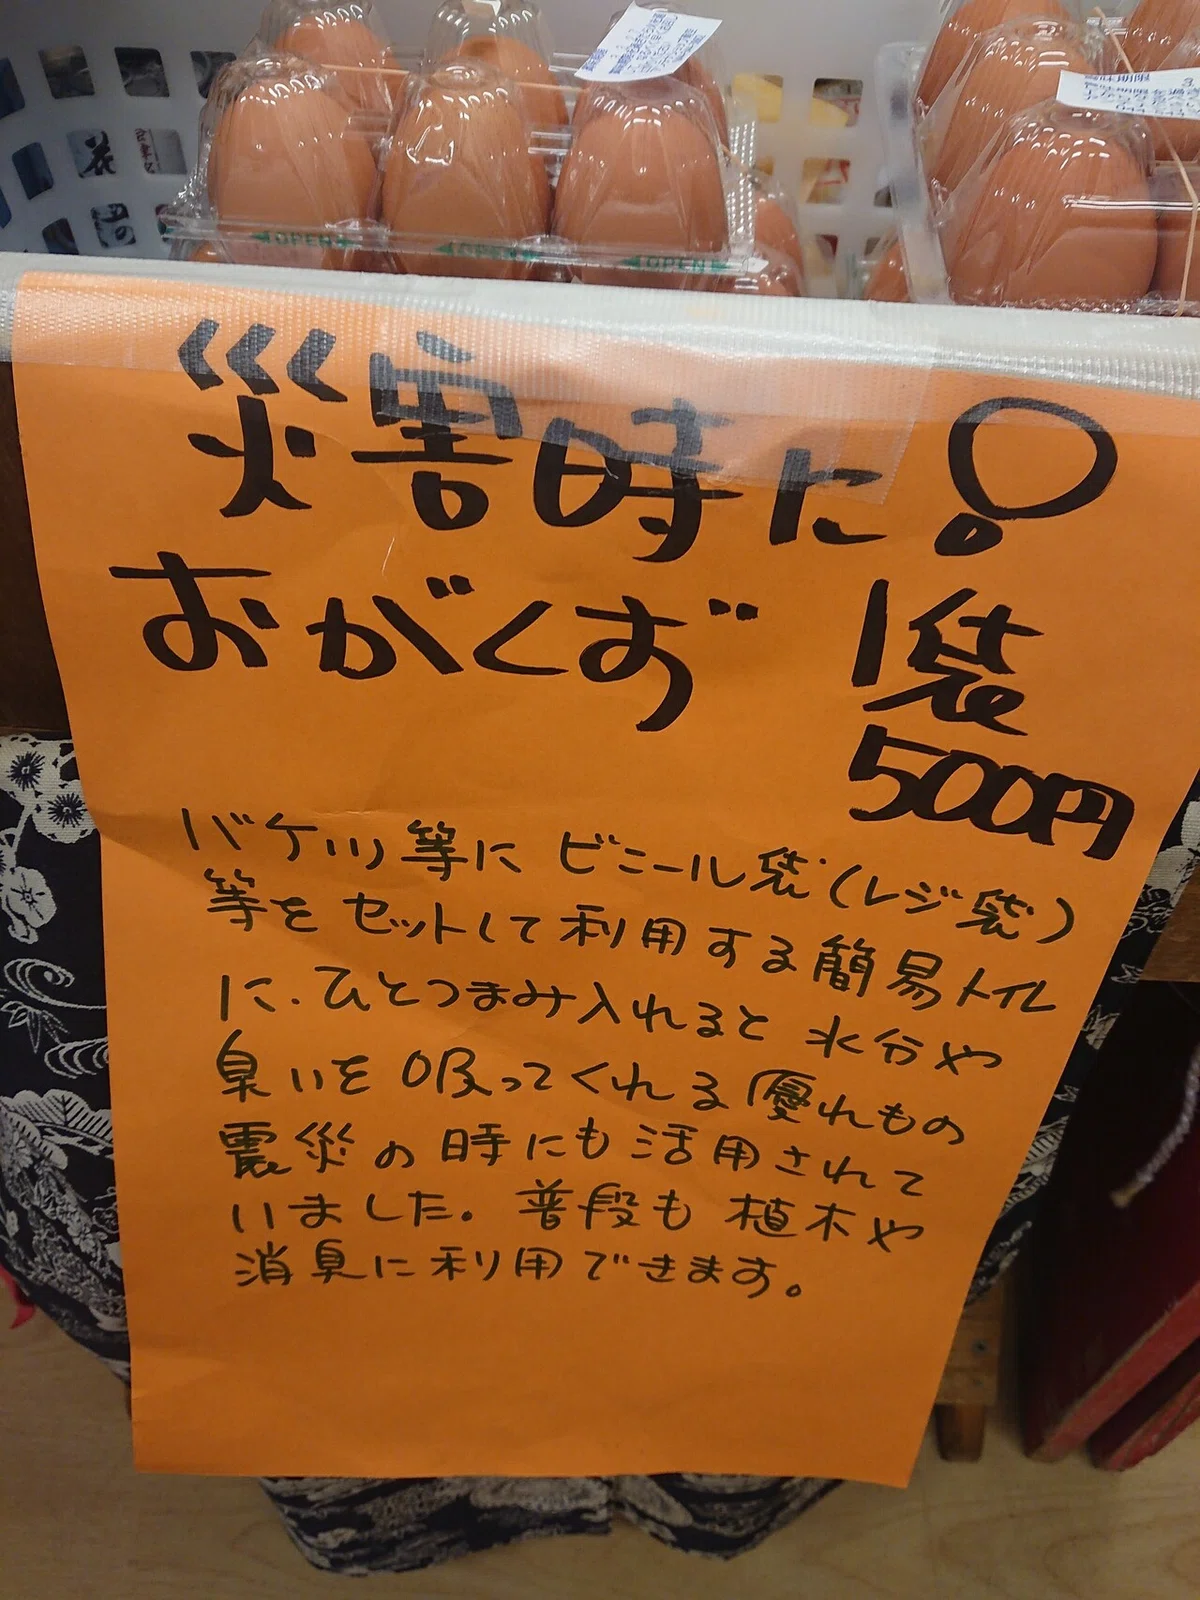 花
の
OPEN
OPEN
OPEN
賞味期限
災害時に!
おがくず 1袋
500円
バケツ等にビニール袋(レジ袋)
等をセットして利用する簡易トイレ
に、ひとつまみ入れると水分や
臭いを吸ってくれる優れもの
震災の時にも活用されて
いました。普段も植木や
消臭に利用できます。